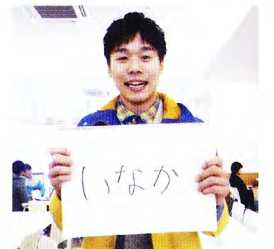 いなか